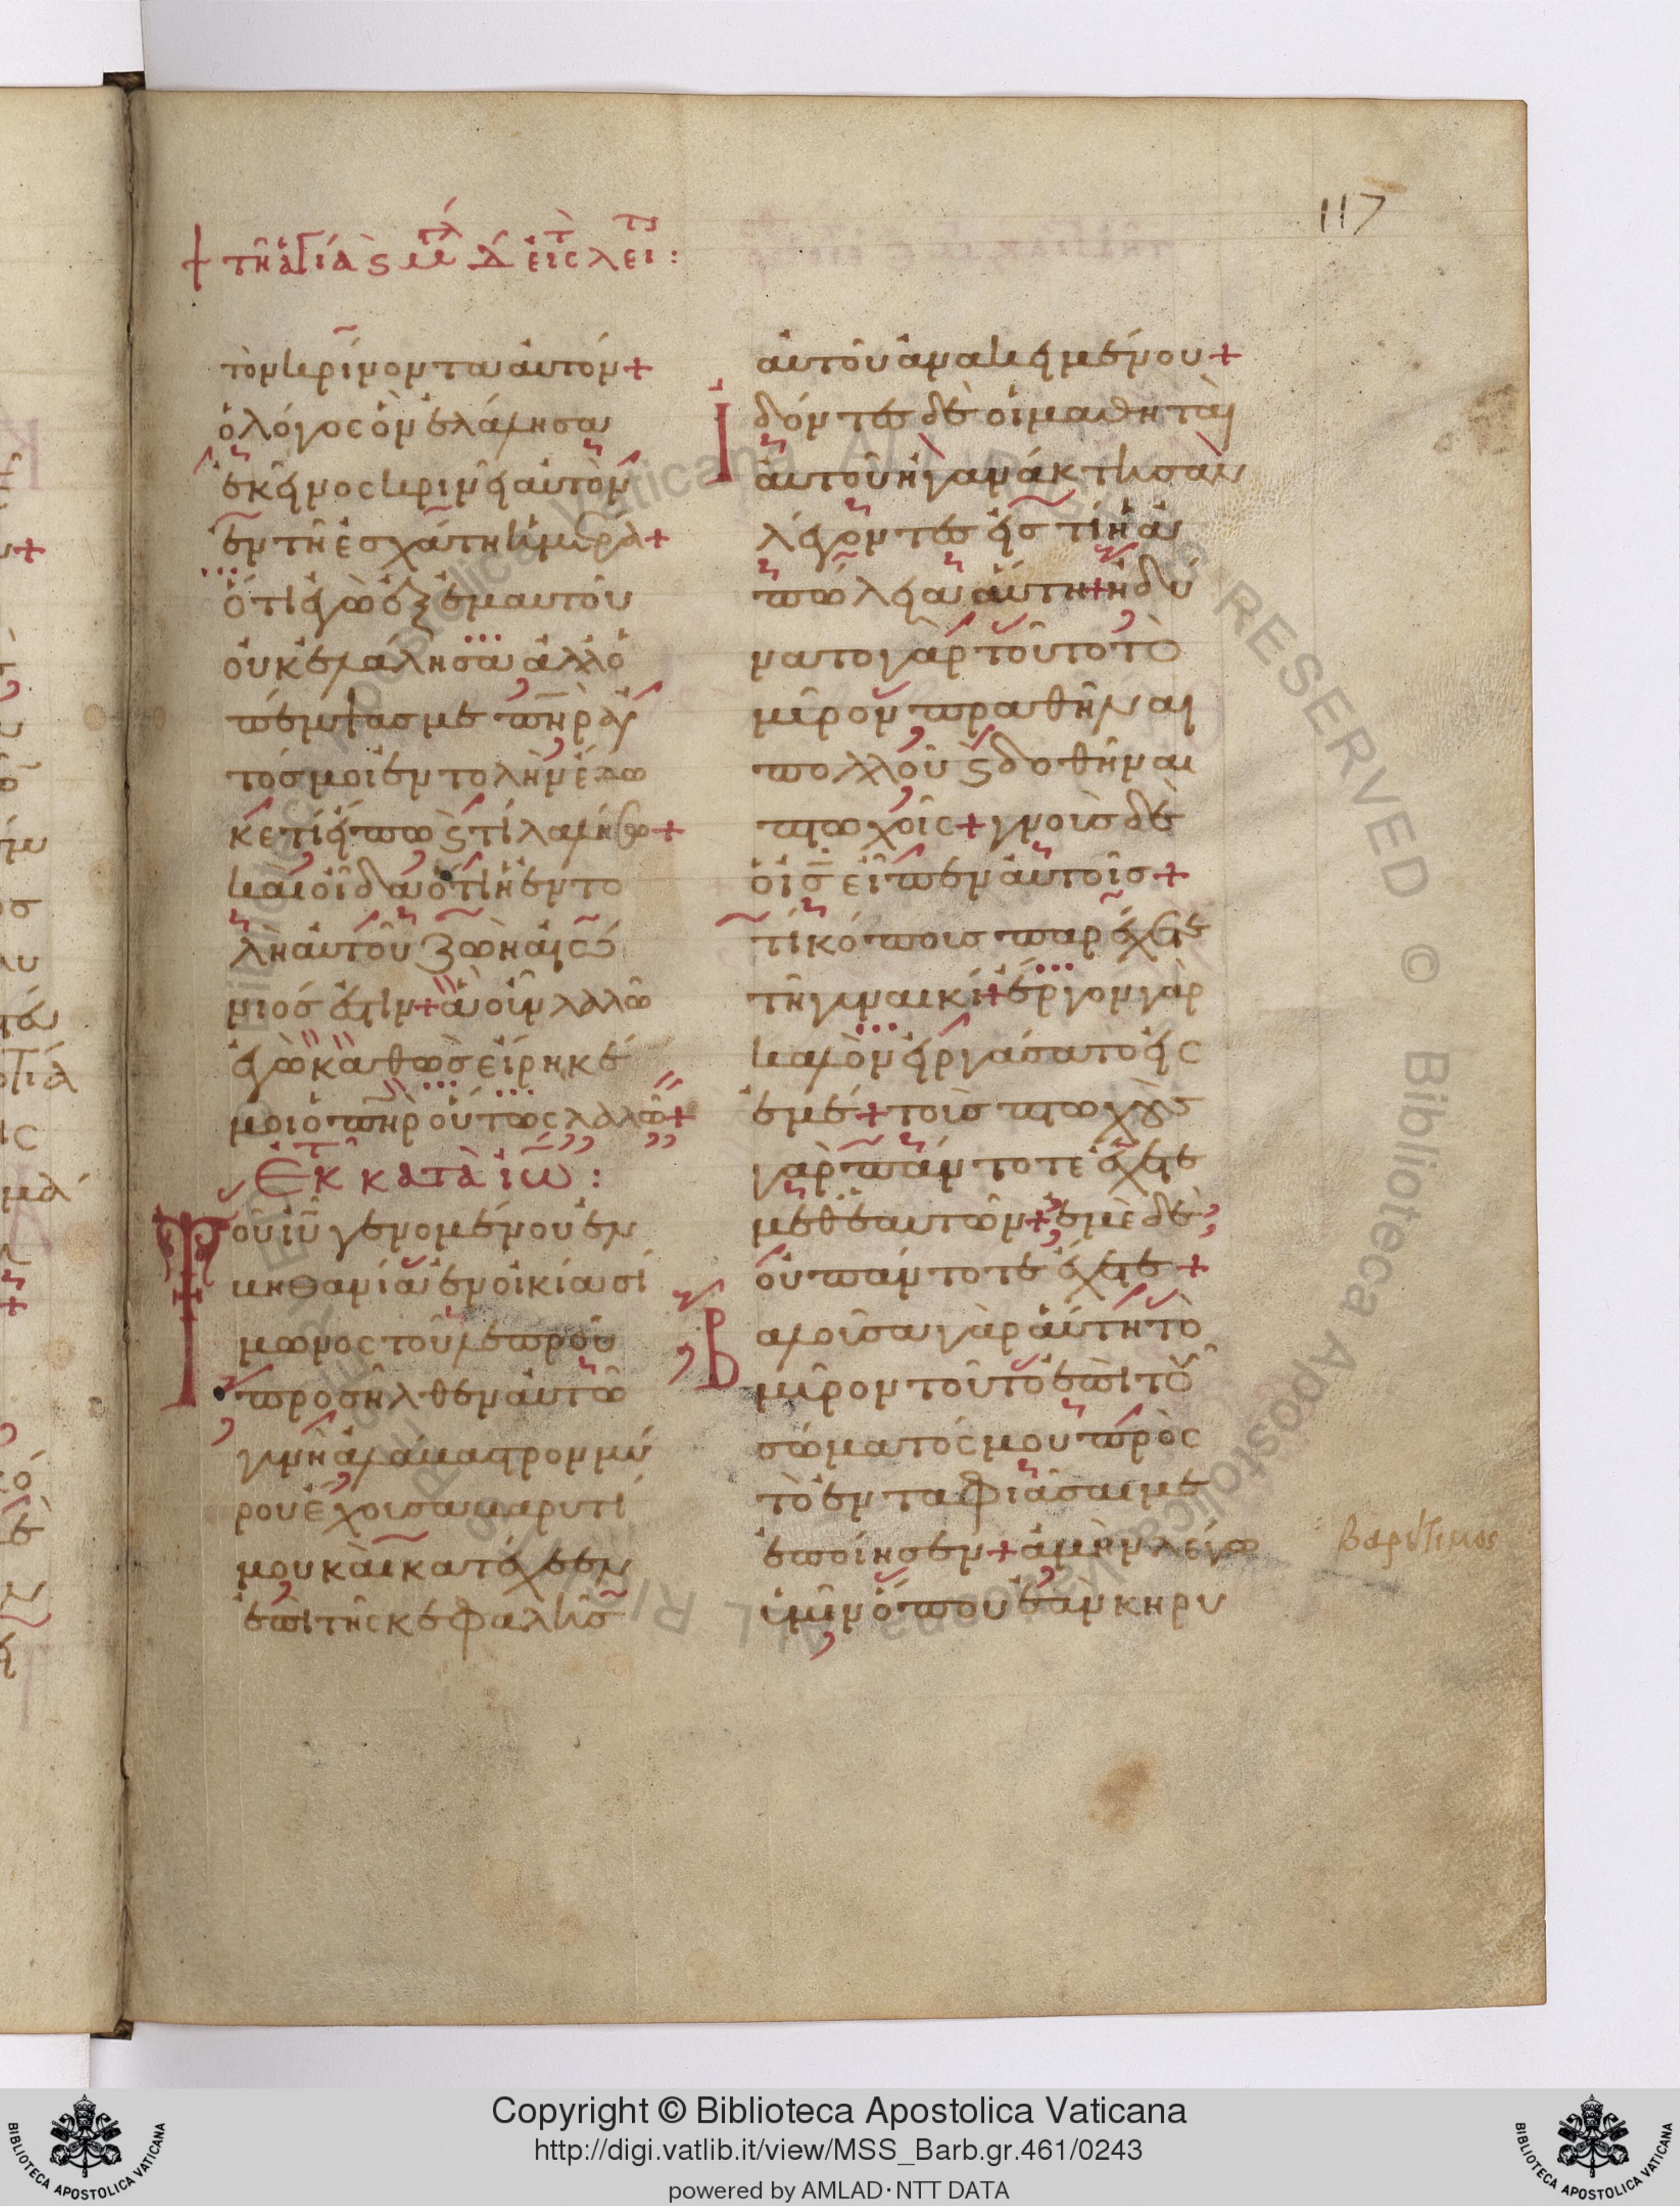 117
+ τῆ ἁγίὰ ϛ μ Δ εἰς λει :
τὸν κρίνοντα αὐτόν+
ὁ λόγος ὃν ἐλάλησα
ἐκεῖνος κρινεῖ αὐτὸν
ἐν τῆ ἐσχάτη ἡμέρα+
ὅτι ἐγὼ ἐξ ἐμαυτοῦ
οὐκ ἐλάλησα ἀλλ' ὁ
πέμψας με πηρ αὐ
τός μοι ἐντολὴν ἔδω
κε τί εἴπω ϛ τί λαλήσω+
καὶ οἶδα ὅτι ἡ ἐντο
λὴ αὐτοῦ ζωὴ αἰώ
νιός ἐστιν+ ἃ οὖν λαλῶ
ἐγὼ καθὼς εἴρηκέ
μοι ὁ πηρ οὕτως λαλῶ+
Ἐκ κατὰ ἰω :
Τοῦ ἰῦ γενομένου ἐν
βηθανία ἐν οἰκία σί
μωνος τοῦ λεπροῦ
προσῆλθεν αὐτῶ
γυνὴ ἀλάβαστρον μύ
ρου ἔχουσα βαρυτί
μου καὶ κατέχεεν
ἐπὶ τῆς κεφαλῆς
αὐτοῦ ἀνακειμένου+
Ἰδόντες δὲ οἱ μαθηταὶ
αὐτοῦ ἠγανάκτησαν
λέγοντες εἰς τί ἡ ἀ
πώλεια αὕτη+ ἠδύ
νατο γὰρ τοῦτο τὸ
μῦρον πραθῆναι
πολλοῦ ϛ δοθῆναι
πτωχοῖς+ γνοὺς δὲ
ὁ ις εἶπεν αὐτοῖς+
τί κόπους παρέχετε
τῆ γυναικί+ ἔργον γὰρ
καλὸν εἰργάσατο εἰς
ἐμέ+ τοὺς πτωχοὺς
γὰρ πάντοτε ἔχετε
μεθ' ἑαυτῶν+ ἐμὲ δὲ
οὐ πάντοτε ἔχετε+
Βαλοῦσα γὰρ αὕτη τὸ
μῦρον τοῦτο ἐπὶ τοῦ
σώματός μου πρὸς
τὸ ἐνταφιάσαι με
ἐποίησεν+ ἀμὴν λέγω
ὑμῖν ὅπου ἐὰν κηρυ
βαρύτιμος
Copyright © Biblioteca Apostolica Vaticana
http://digi.vatlib.it/view/MSS_Barb.gr.461/0243
powered by AMLAD·NTT DATA
BIBLIOTECA APOSTOLICA VATICANA
BIBLIOTECA APOSTOLICA VATICANA